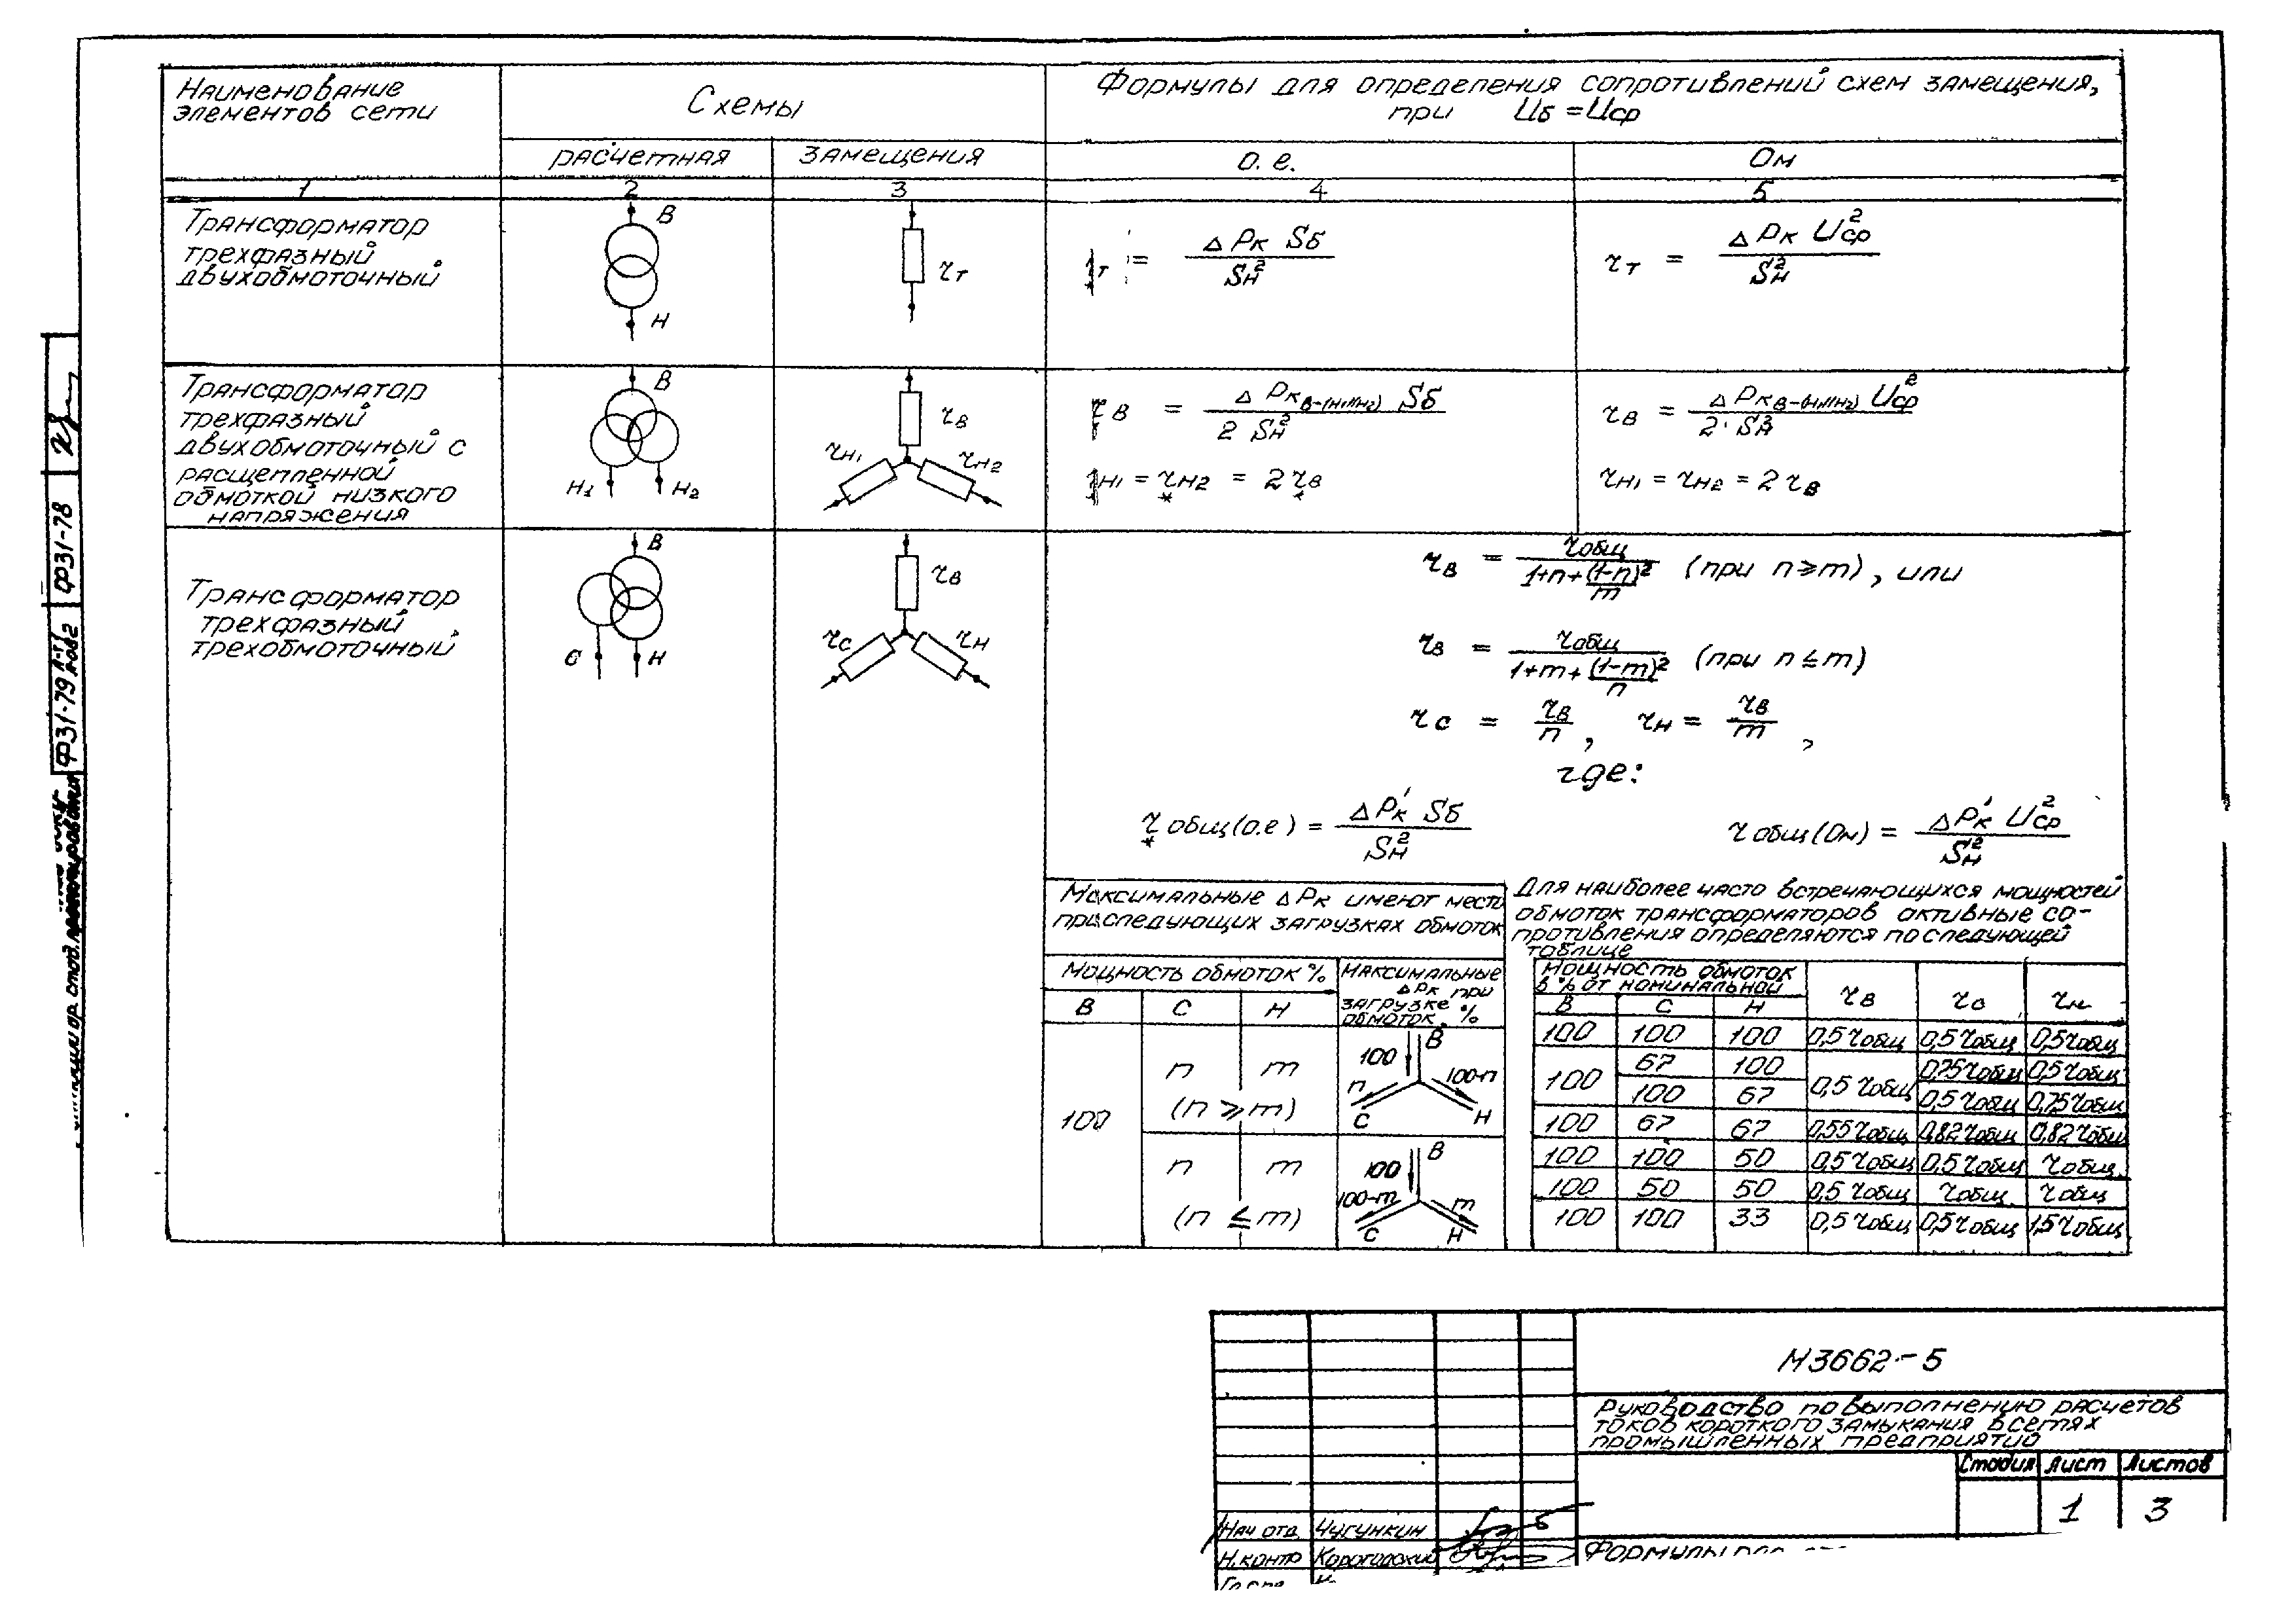 Наименование
элементов сети
Схемы
Формулы для определения сопротивлений схем замещения,
при Uб = Uср
расчетная
замещения
о. е.
Ом
1 2 3 4 5
Трансформатор
трехфазный
двухобмоточный
В
Н
rт
rт = ΔPк Sб / Sн²
*
rт = ΔPк Uср² / Sн²
Трансформатор
трехфазный
двухобмоточный с
расщепленной
обмоткой низкого
напряжения
В
Н1 Н2
rв
rн1 rн2
rв = ΔPк в-(н1//н2) Sб / 2 Sн²
rн1 = rн2 = 2 rв
* * *
rв = ΔPк в-(н1//н2) Uср² / 2· Sн²
rн1 = rн2 = 2 rв
Трансформатор
трехфазный
трехобмоточный
В
С Н
rв
rс rн
rв = rобщ / 1+n+(1-n)²/m (при n ≥ m), или
rв = rобщ / 1+m+(1-m)²/n (при n ≤ m)
rс = rв/n , rн = rв/m ,
где:
r общ (о.е) = ΔP'к Sб / Sн²
*
r общ (Ом) = ΔP'к Uср² / Sн²
Максимальные ΔPк имеют место
при следующих загрузках обмоток
Мощность обмоток %
Максимальные
ΔPк при
загрузке
обмоток, %
В С Н
100
n m
(n ≥ m)
В
100
n 100-n
С Н
n m
(n ≤ m)
В
100
100-m m
С Н
Для наиболее часто встречающихся мощностей
обмоток трансформаторов активные со-
противления определяются по следующей
таблице
Мощность обмоток
в % от номинальной
rв rс rн
В С Н
100 100 100 0,5 rобщ 0,5 rобщ 0,5 rобщ
100 67 100 0,5 rобщ 0,75 rобщ 0,5 rобщ
100 67 0,5 rобщ 0,75 rобщ
100 67 67 0,55 rобщ 0,82 rобщ 0,82 rобщ
100 100 50 0,5 rобщ 0,5 rобщ rобщ.
100 50 50 0,5 rобщ rобщ rобщ
100 100 33 0,5 rобщ 0,5 rобщ 1,5 rобщ
М3662-5
Руководство по выполнению расчетов
токов короткого замыкания в сетях
промышленных предприятий
Стадия Лист Листов
1 3
Нач отд. Чугункин
Н.контр Корогодский
Формулы
Ф31-78
Ф31-79